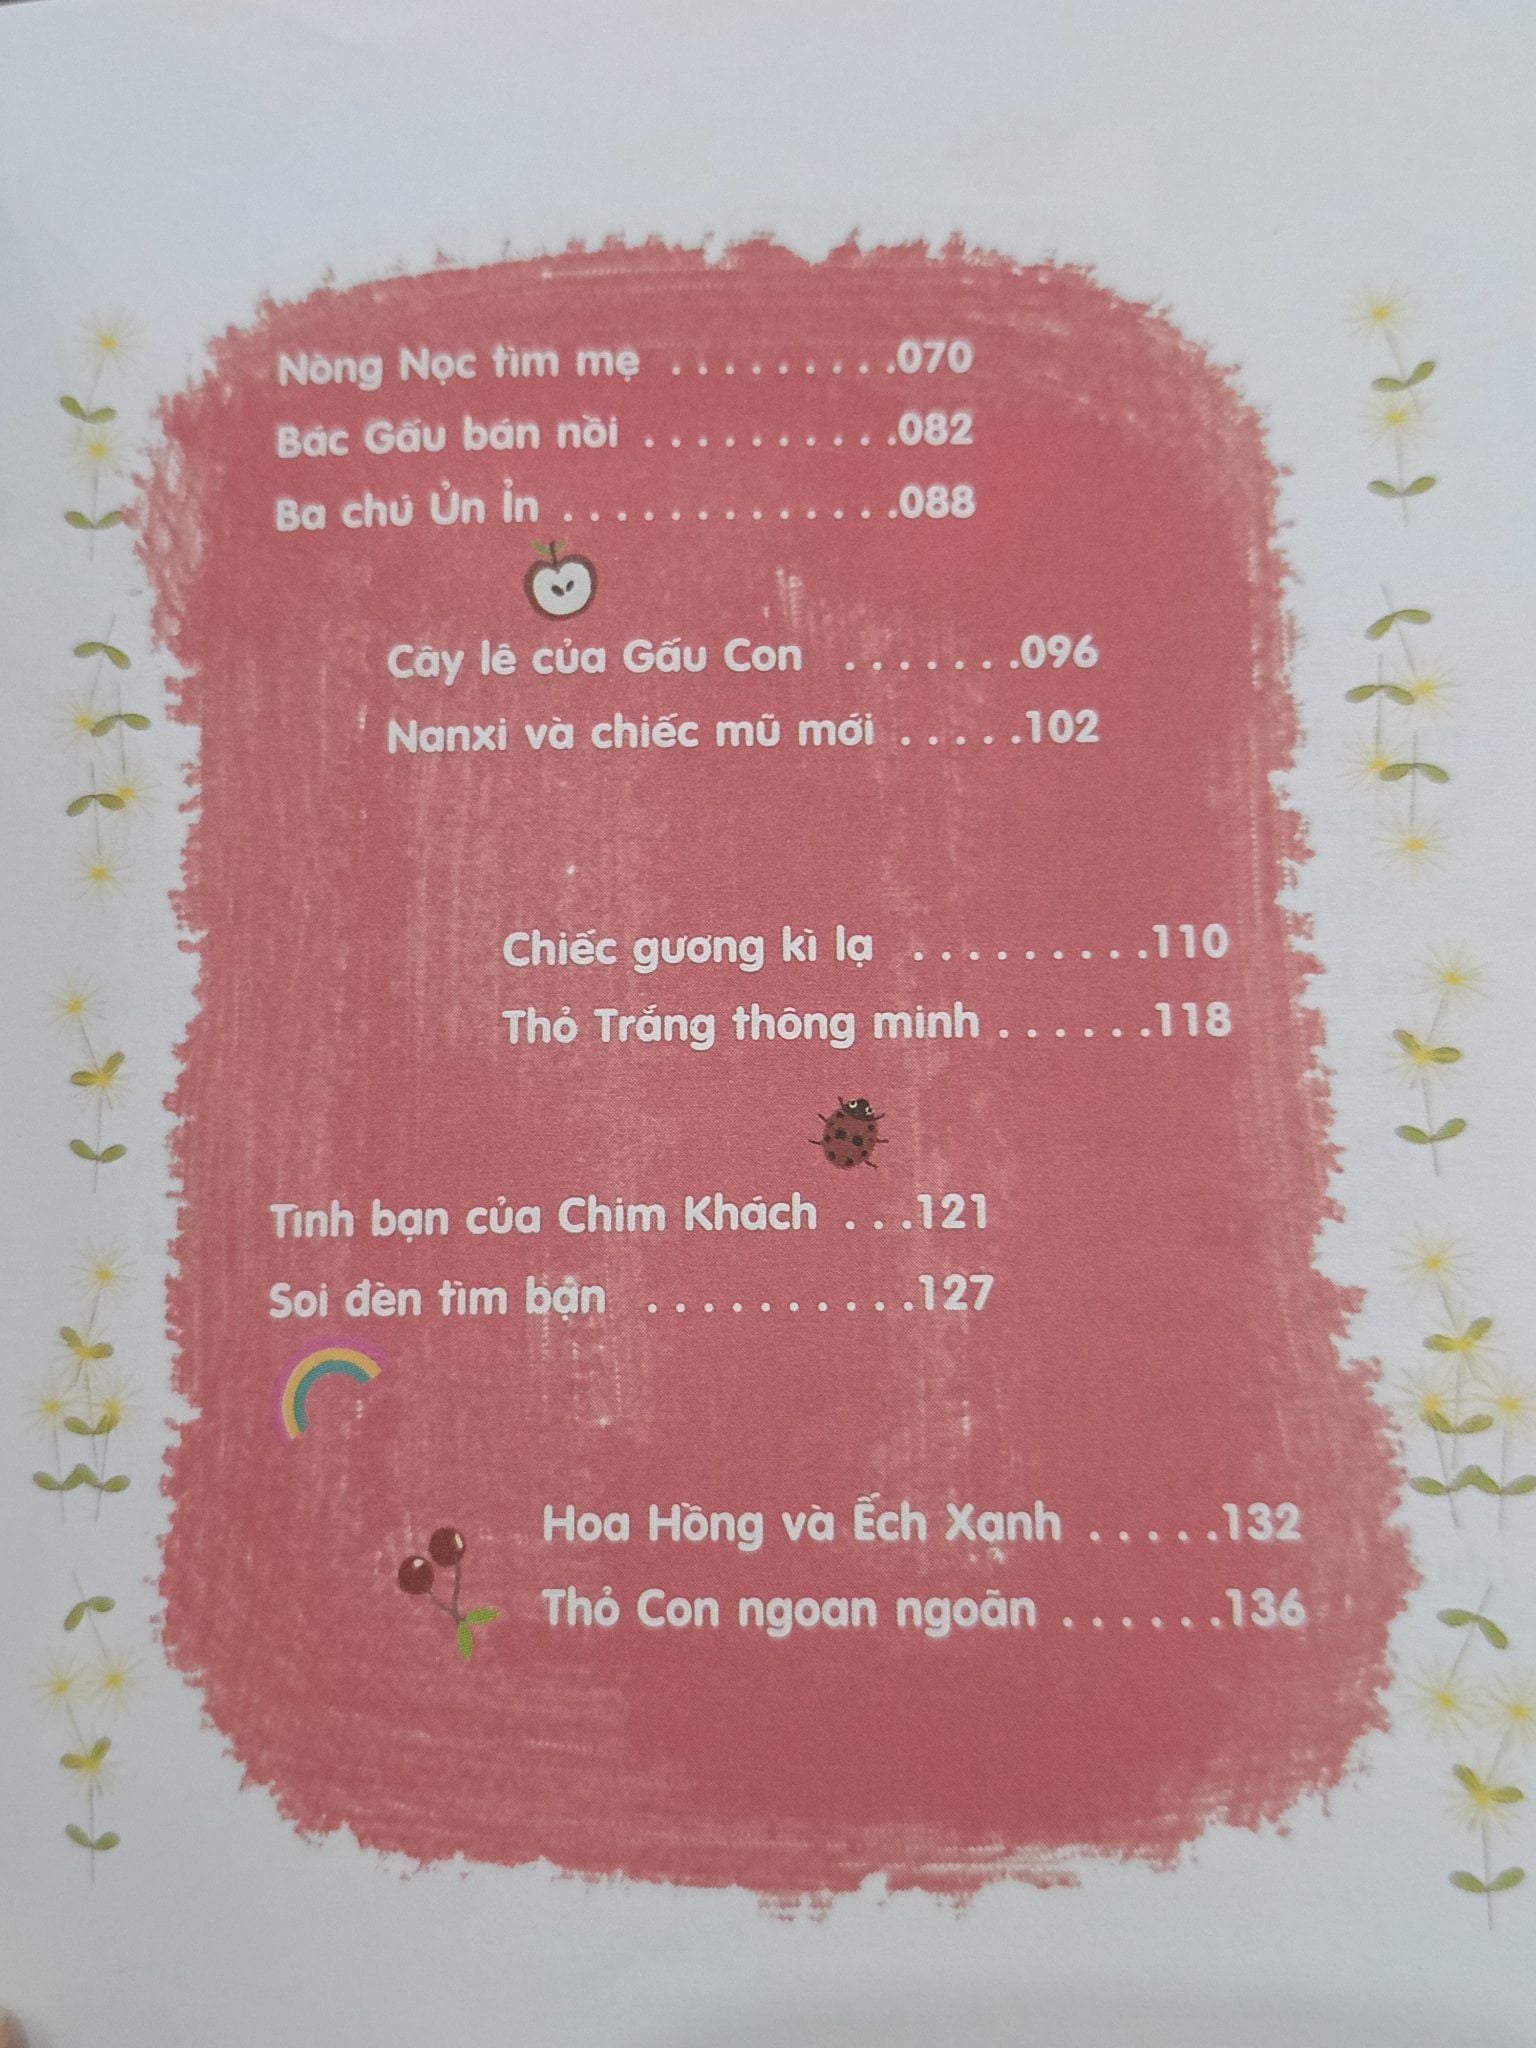 Nòng Nọc tìm mẹ ..........070
Bác Gấu bán nồi ..........082
Ba chú Ủn Ỉn .............088
Cây lê của Gấu Con .......096
Nanxi và chiếc mũ mới .....102
Chiếc gương kì lạ ..........110
Thỏ Trắng thông minh ......118
Tình bạn của Chim Khách ...121
Soi đèn tìm bận ...........127
Hoa Hồng và Ếch Xạnh .....132
Thỏ Con ngoan ngoãn ......136